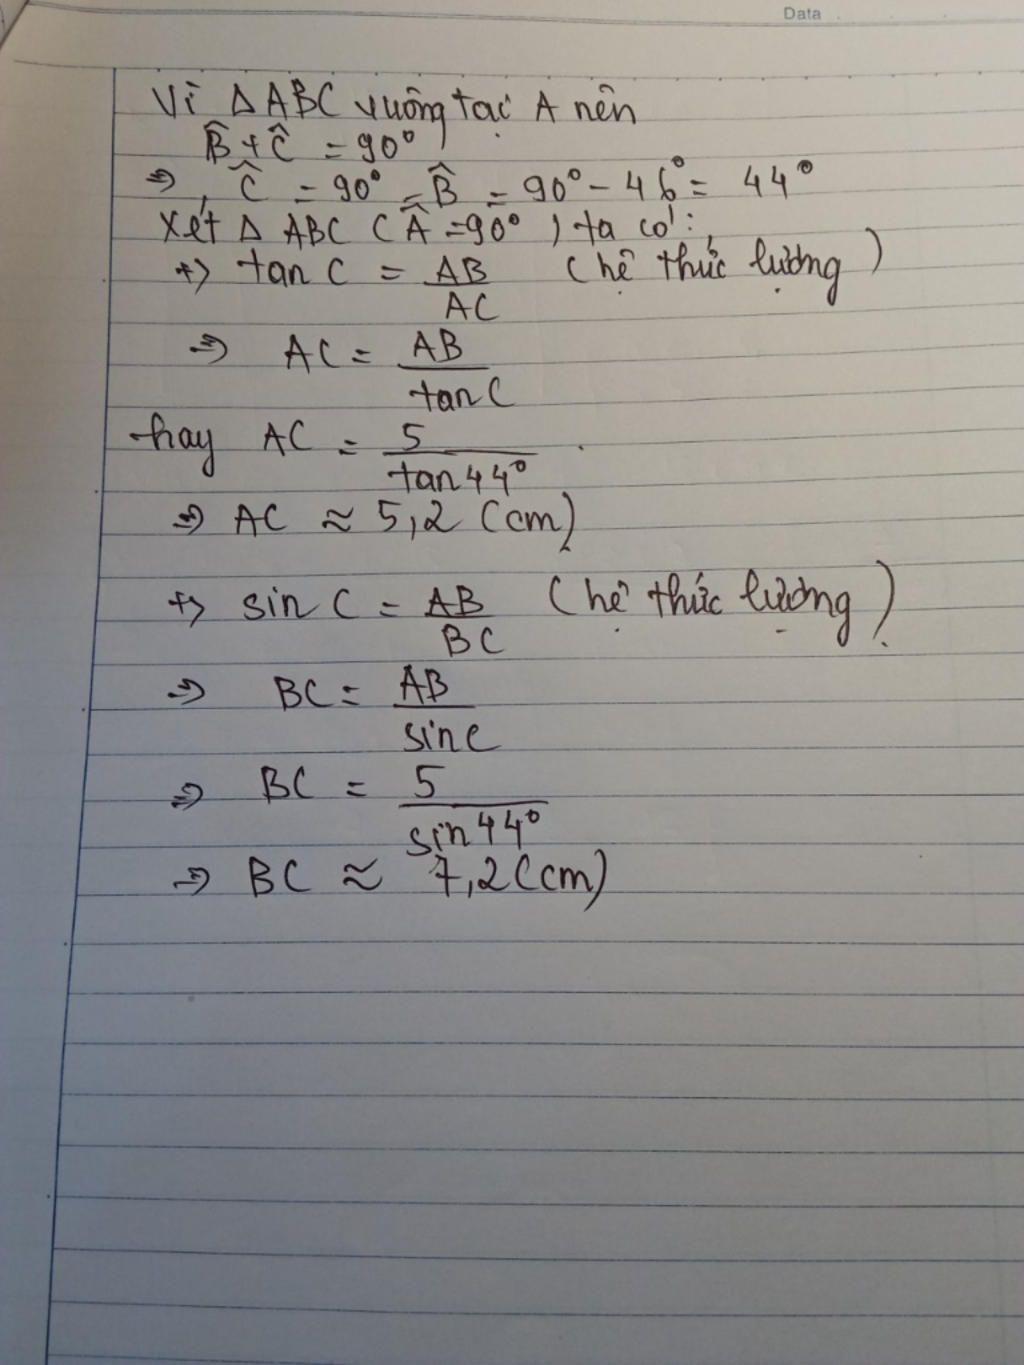 Data
Vì Δ ABC vuông tại A nên
B̂ + Ĉ = 90°
⇒ Ĉ = 90° - B̂ = 90° - 46° = 44°
Xét Δ ABC (Â = 90°) ta có:
+> tan C = AB/AC (hệ thức lượng)
⇒ AC = AB/tan C
hay AC = 5/tan 44°
⇒ AC ≈ 5,2 (cm)
+> sin C = AB/BC (hệ thức lượng)
⇒ BC = AB/sin C
⇒ BC = 5/sin 44°
⇒ BC ≈ 7,2 (cm)